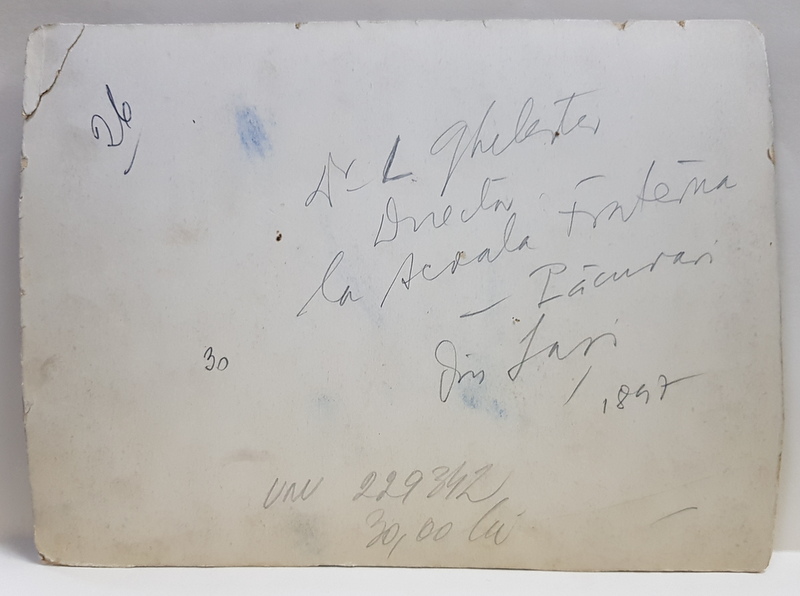 26
Dr L. Ghelerter
Director
la Școala Fraterna
— Păcurari
din Iași
1897
30
229342
30,00 lei